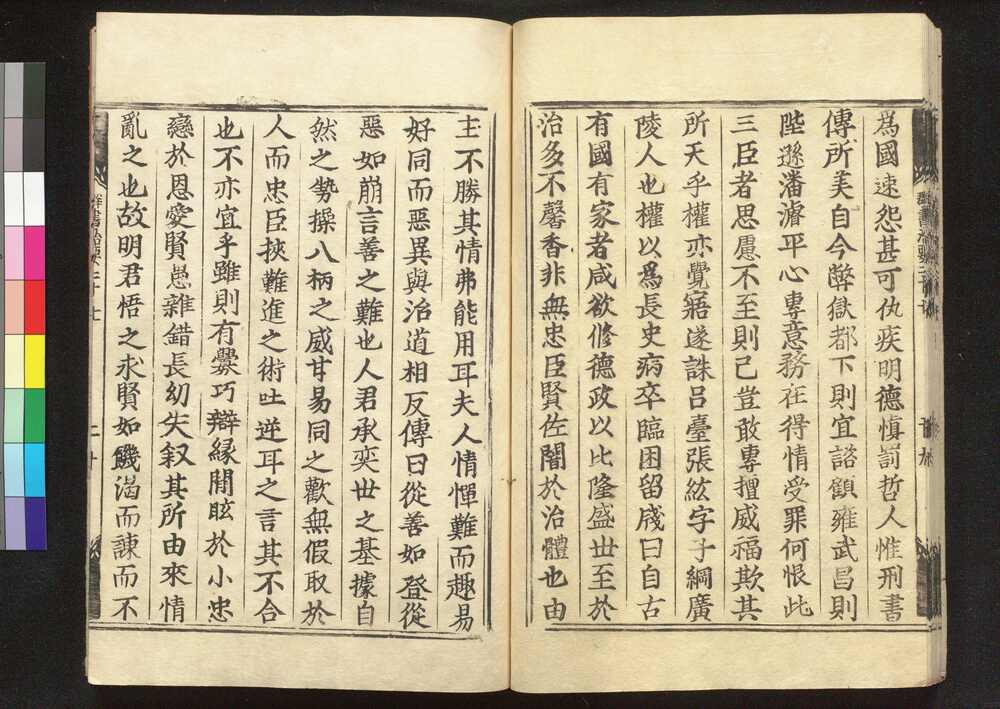 為國速怨甚可仇疾明德慎罰哲人惟刑書
傳所美自今蔽獄都下則宜諮顧雍武昌則
陸遜潘濬平心專意務在得情受罪何恨此
三臣者思慮不至則已豈敢專擅威福欺其
所天乎權亦覺寤遂誅呂臺張紘字子綱廣
陵人也權以為長史病卒臨困留牋曰自古
有國有家者咸欲修德政以比隆盛世至於
治多不馨香非無忠臣賢佐闇於治體也由
主不勝其情弗能用耳夫人情憚難而趣易
好同而惡異與治道相反傳曰從善如登從
惡如崩言善之難也人君承奕世之基據自
然之勢操八柄之威甘易同之歡無假取於
人而忠臣挾難進之術吐逆耳之言其不合
也不亦宜乎雖則有釁巧辯緣間眩於小忠
戀於恩愛賢愚雜錯長幼失敘其所由來情
亂之也故明君悟之求賢如饑渴而諫而不
群書治要二十七
二十